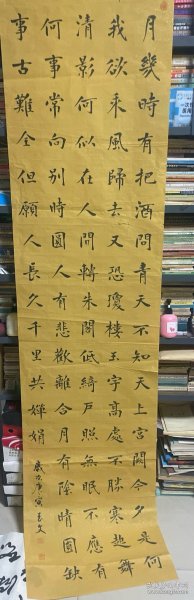 月幾時有把酒問青天不知天上宮闕今夕是何
我欲乘風歸去又恐瓊樓玉宇高處不勝寒起舞
清影何似在人間轉朱閣低綺戶照無眠不應有
何事常向別時圓人有悲歡離合月有陰晴圓缺
事古難全但願人長久千里共嬋娟